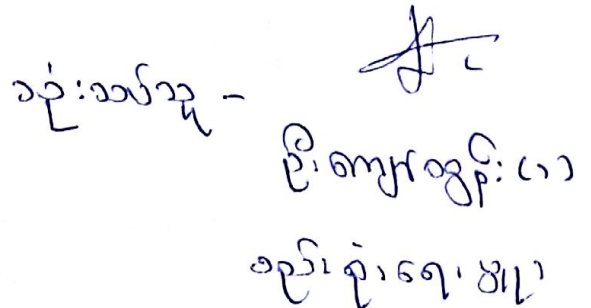 သုံးသပ်သူ -
ဦးကျော်ထွန်း (၁)
စည်းရုံးရေးမှူး